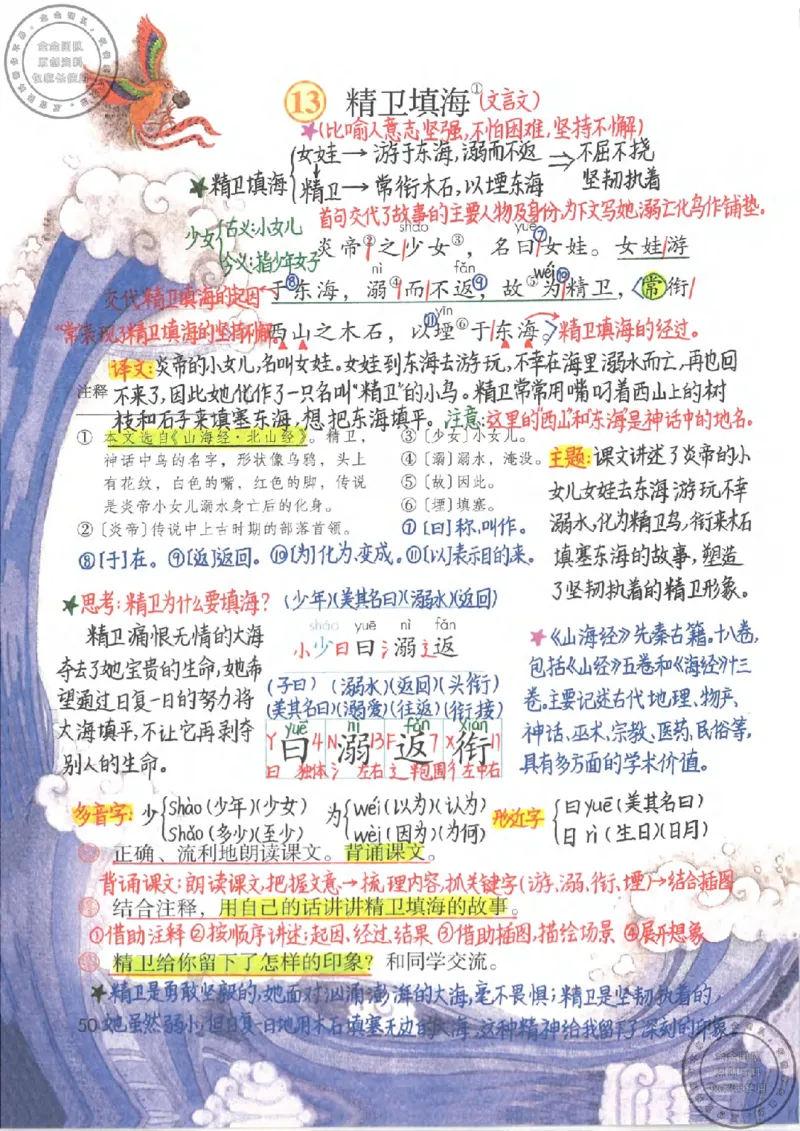 13 精卫填海①(文言文)
★(比喻人意志坚强,不怕困难,坚持不懈)
女娃→游于东海,溺而不返⇒不屈不挠
★精卫填海
精卫→常衔木石,以堙东海 坚韧执着
首句交代了故事的主要人物及身份,为下文写她溺亡化鸟作铺垫。
少女 古义:小女儿
今义:指少年女子
shào yuē
炎帝②之少女③,名曰⑦女娃。女娃游
nì fǎn wéi
交代精卫填海的起因
于⑧东海,溺④而不返⑨,故⑤为⑩精卫,常衔
yīn
"常"表现了精卫填海的坚持不懈。
西山之木石,以⑪堙⑥于东海。
精卫填海的经过。
译文:炎帝的小女儿,名叫女娃。女娃到东海去游玩,不幸在海里溺水而亡,再也回
不来了,因此她化作了一只名叫"精卫"的小鸟。精卫常常用嘴叼着西山上的树
枝和石子来填塞东海,想把东海填平。注意:这里的"西山"和东海"是神话中的地名。
注释
① 本文选自《山海经·北山经》。精卫,
神话中鸟的名字,形状像乌鸦,头上
有花纹,白色的嘴,红色的脚,传说
是炎帝小女儿溺水身亡后的化身。
②〔炎帝〕传说中上古时期的部落首领。
③〔少女〕小女儿。
④〔溺〕溺水,淹没。
⑤〔故〕因此。
⑥〔堙〕填塞。
⑦[曰]称,叫作。
⑧[于]在。⑨[返]返回。⑩[为]化为,变成。⑪[以]表示目的来。
主题:课文讲述了炎帝的小
女儿女娃去东海游玩不幸
溺水,化为精卫鸟,衔来木石
填塞东海的故事,塑造
了坚韧执着的精卫形象。
★思考:精卫为什么要填海?
精卫痛恨无情的大海
夺去了她宝贵的生命,她希
望通过日复一日的努力将
大海填平,不让它再剥夺
别人的生命。
(少年)(美其名曰)(溺水)(返回)
shào yuē nì fǎn
小少日曰氵溺辶返
(子曰)(溺水)(返回)(头衔)
(美其名曰)(溺爱)(往返)(衔接)
yuē nì fǎn xián
Y曰4 N溺13 F返7 X衔11
曰 独体 氵 左右 辶 半包围 彳 左中右
★《山海经》先秦古籍。十八卷,
包括《山经》五卷和《海经》十三
卷。主要记述古代地理、物产、
神话、巫术、宗教、医药、民俗等,
具有多方面的学术价值。
多音字:少 shào(少年)(少女) 为 wéi(以为)(认为) 形近字 曰yuē(美其名曰)
shǎo(多少)(至少) wèi(因为)(为何) 日rì(生日)(日月)
正确、流利地朗读课文。背诵课文。
背诵课文:朗读课文,把握文意→梳理内容,抓关键字(游、溺、衔、堙)→结合插图
结合注释,用自己的话讲讲精卫填海的故事。
①借助注释②按顺序讲述:起因、经过、结果③借助插图,描绘场景④展开想象
精卫给你留下了怎样的印象?和同学交流。
★精卫是勇敢坚毅的,她面对汹涌澎湃的大海,毫不畏惧;精卫是坚韧执着的,
50 她虽然弱小,但日复一日地用木石填塞无边的大海,这种精神给我留下了深刻的印象